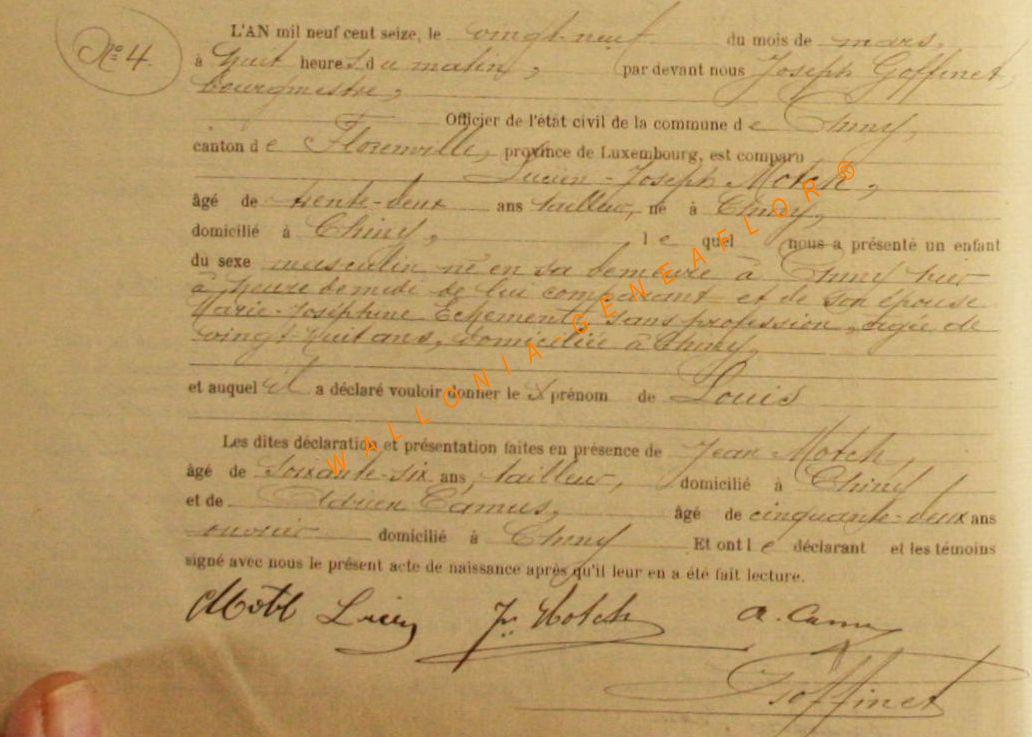 N° 4.
L'AN mil neuf cent seize, le vingt-neuf du mois de mars,
à huit heures du matin, par devant nous Joseph Goffinet,
bourgmestre,
Officier de l'état civil de la commune de Chiny,
canton de Florenville, province de Luxembourg, est comparu
Lucien-Joseph Motch,
âgé de trente-deux ans tailleur, né à Chiny,
domicilié à Chiny, lequel nous a présenté un enfant
du sexe masculin né en sa demeure à Chiny hier
à heure de midi de lui comparant et de son épouse
Marie-Joséphine Echement, sans profession, agée de
vingt-huit ans, domiciliée à Chiny,
et auquel il a déclaré vouloir donner le prénom de Louis
Les dites déclaration et présentation faites en présence de Jean Motch,
âgé de soixante-six ans, tailleur, domicilié à Chiny
et de Adrien Camus, âgé de cinquante-deux ans
ouvrier domicilié à Chiny Et ont le déclarant et les témoins
signé avec nous le présent acte de naissance après qu'il leur en a été fait lecture.
Motch Lucien J. Motch A. Camus
Goffinet
WALLONIA-GENEAFLOR®